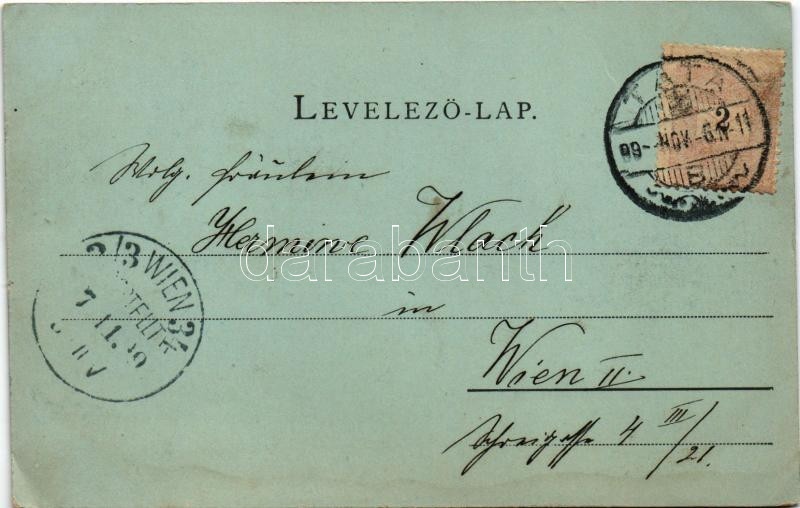 LEVELEZŐ-LAP.
TATA
2
99-NOV.-6.N-11
B
Wolg. Fräulein
Hermine Wlach
in
Wien II.
4 III/21.
2/3 WIEN 31
BESTELLT
7.11.99
darabanth